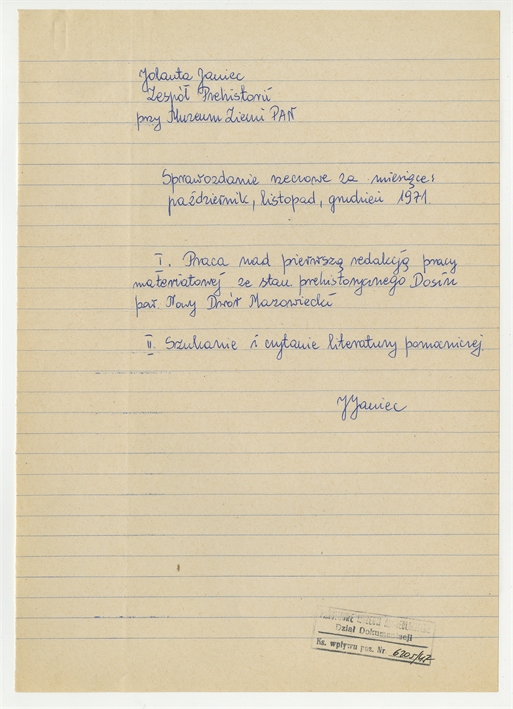 Jolanta Janiec
Zespół Prehistorii
przy Muzeum Ziemi PAN
Sprawozdanie rzeczowe za miesiące:
październik, listopad, grudzień 1971.
I. Praca nad pierwszą redakcją pracy
materiałowej ze stan. prehistorycznego Dosin
pow. Nowy Dwór Mazowiecki
II. Szukanie i czytanie literatury pomocniczej.
JJaniec
Dział Dokumentacji
Ks. wpływu poz. Nr